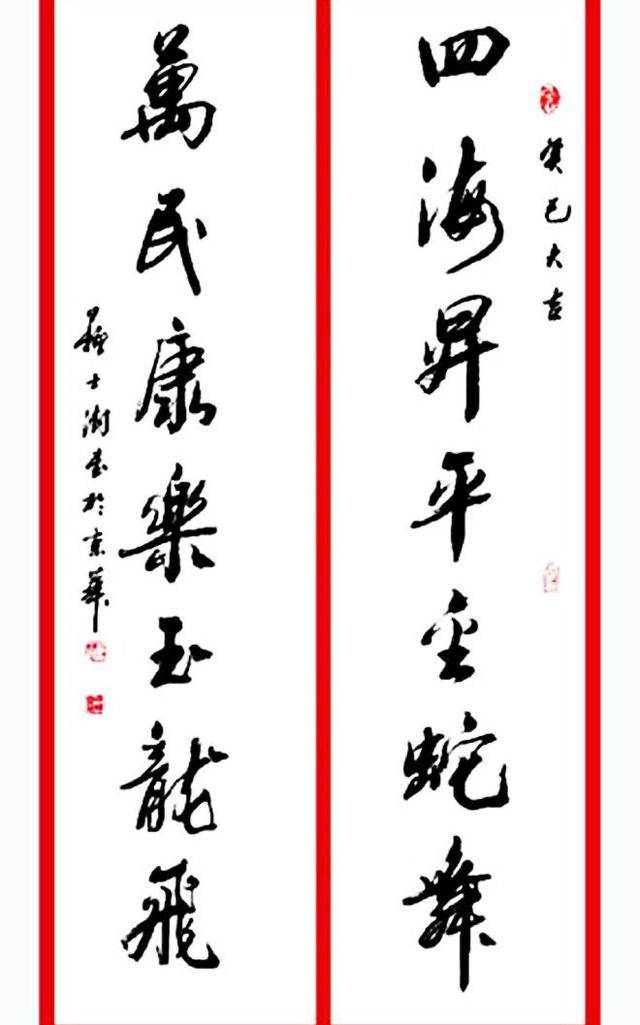 癸巳大吉
四海昇平金蛇舞
萬民康樂玉龍飛
蘇士澍书於京華